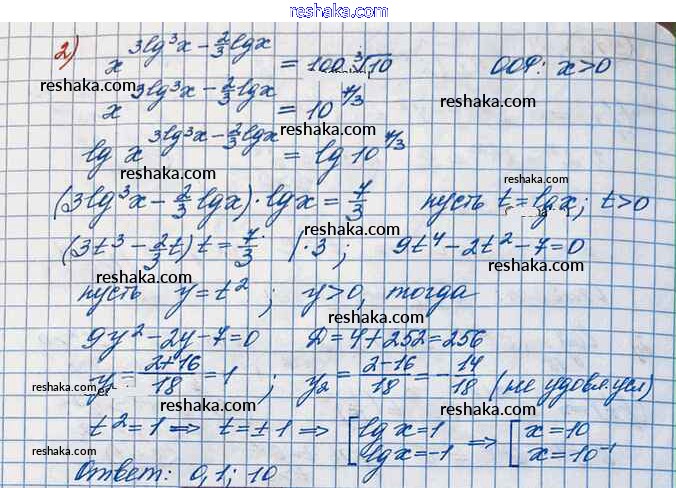 reshak.ru
2) x^{3lg³x - 2/3 lgx} = 100·∛10 ООФ: x>0
reshaka.com
x^{3lg³x - 2/3 lgx} = 10^{7/3}
reshaka.com
reshaka.com
lg x^{3lg³x - 2/3 lgx} = lg 10^{7/3}
reshaka.com
reshaka.com
(3lg³x - 2/3 lgx)·lgx = 7/3 пусть t = lgx; t>0
reshaka.com
(3t³ - 2/3 t) t = 7/3 |·3 ; 9t⁴ - 2t² - 7 = 0
reshaka.com
reshaka.com
пусть y = t² ; y>0, тогда
reshaka.com
9y² - 2y - 7 = 0 D = 4 + 252 = 256
reshaka.com
reshaka.com
y = (2+16)/18 = 1 ; y₂ = (2-16)/18 = -14/18 (не удовл. усл)
reshaka.com
reshaka.com
t² = 1 ⇒ t = ±1 ⇒ [ lg x = 1 ⇒ [ x = 10
lg x = -1 x = 10⁻¹
reshaka.com
Ответ: 0,1; 10
reshaka.com
reshak.ru